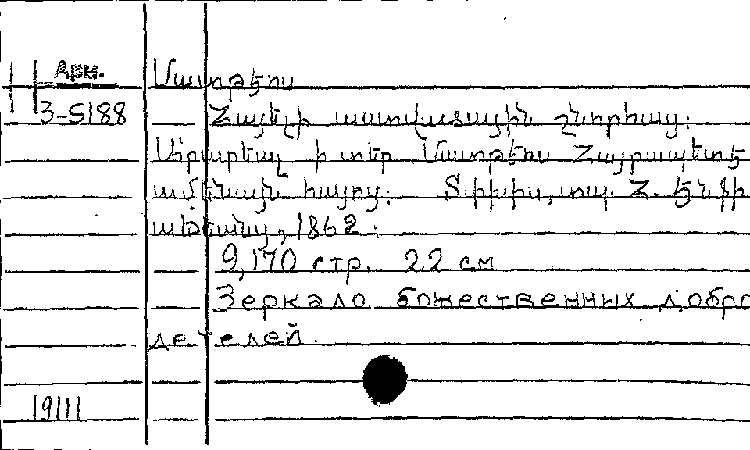 Арм.
Մատթէոս
3-5188
Հայելի աստվածային շնորհաց:
Արարեալ ի տեր Մատթէոս Հայրապետէ
ամենայն հայոց: Տփխիս, տպ. Հ. Էնֆի
աճեանց, 1862.
9,170 стр. 22 см
Зеркало божественных добро
детелей.
19111